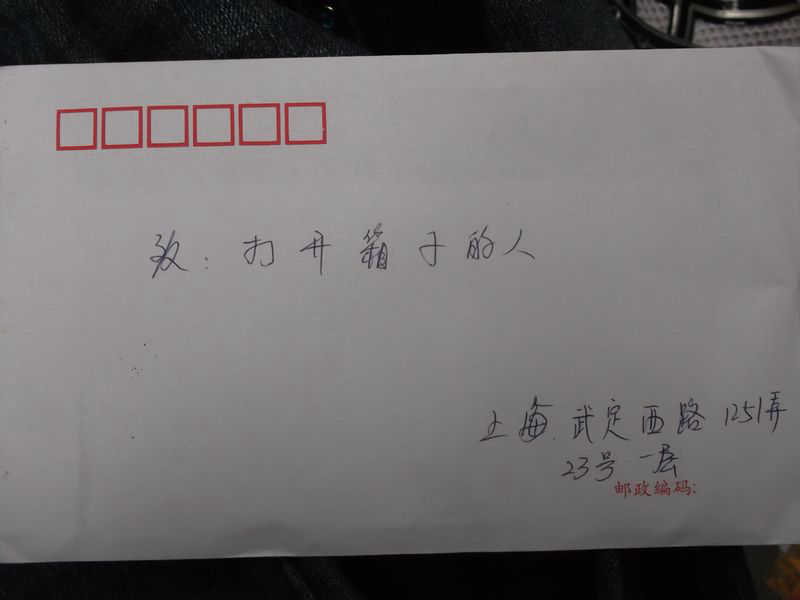 致：打开箱子的人
上海.武定西路1251弄
23号一层
邮政编码: